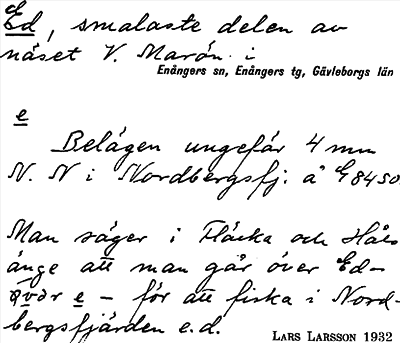 Ed, smalaste delen av
näset V. Marön i
Enångers sn, Enångers tg, Gävleborgs län
e
Belägen ungefär 4 mm
N. N i Nordbergsfj. å G 8450.
Man säger i Fläcka och Håls
änge att man går över Ed-
över e – för att fiska i Nord-
bergsfjärden e.d.
LARS LARSSON 1932